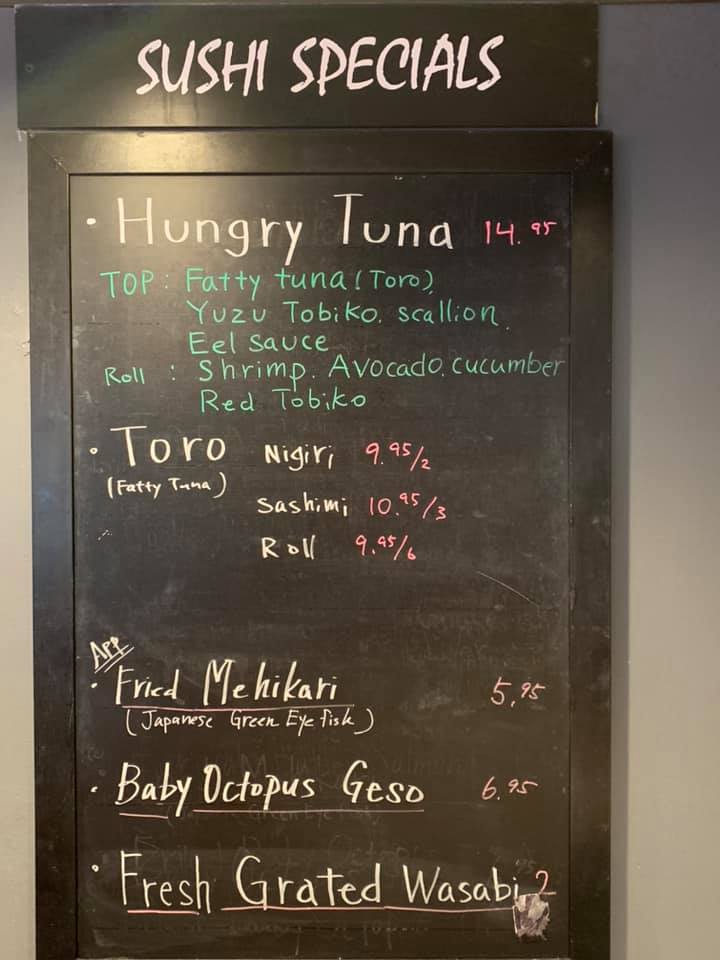 SUSHI SPECIALS
· Hungry Tuna 14.95
TOP : Fatty tuna (Toro),
Yuzu Tobiko. scallion.
Eel sauce
Roll : Shrimp. Avocado. cucumber
Red Tobiko
· Toro Nigiri 9.95/2
(Fatty Tuna)
Sashimi 10.95/3
Roll 9.95/6
APP
· Fried Mehikari 5.95
(Japanese Green Eye fish)
· Baby Octopus Geso 6.95
· Fresh Grated Wasabi 2